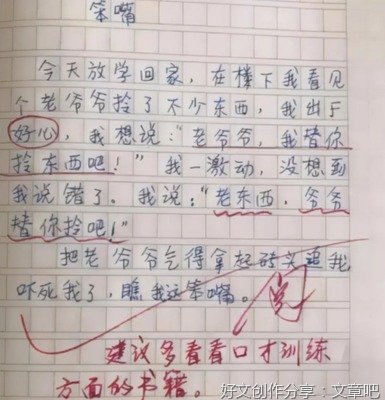 笨嘴
今天放学回家，在楼下我看见
个老爷爷拎了不少东西，我出于
好心，我想说：“老爷爷，我替你
拎东西吧！”我一激动，没想到
我说错了。我说：“老东西，爷爷
替你拎吧！”
把老爷爷气得拿起砖文追我
吓死我了，瞧我这笨嘴。
阅
建议多看看口才训练
方面的书籍。
好文创作分享：文章吧